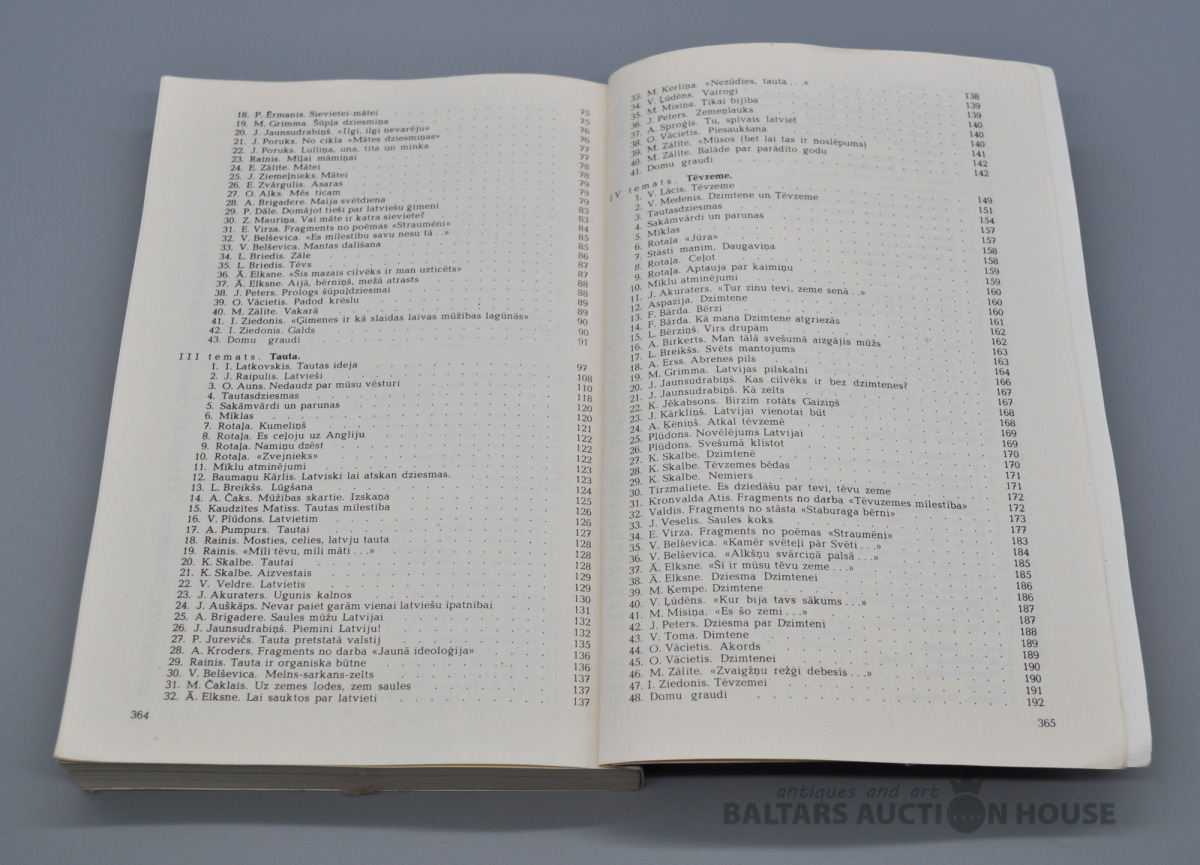 18. P. Ērmanis. Sievietei-mātei 75
19. M. Grimma. Šūpļa dziesmiņa 75
20. J. Jaunsudrabiņš. «Ilgi, ilgi nevarēju» 76
21. J. Poruks. No cikla «Mātes dziesmiņas» 76
22. J. Poruks. Lulliņa, una, tita un minka 77
23. Rainis. Mīļai māmiņai 77
24. E. Zālīte. Mātei 78
25. J. Ziemeļnieks. Mātei 78
26. E. Zvārgulis. Asaras 79
27. O. Alks. Mēs ticam 79
28. A. Brigadere. Maija svētdiena 79
29. P. Dāle. Domājot tieši par latviešu ģimeni 83
30. Z. Mauriņa. Vai māte ir katra sieviete? 83
31. E. Virza. Fragments no poēmas «Straumēni» 84
32. V. Belševica. «Es mīlestību savu nesu tā ..» 85
33. V. Belševica. Mantas dalīšana 85
34. L. Briedis. Zāle 86
35. L. Briedis. Tēvs 87
36. Ā. Elksne. «Šis mazais cilvēks ir man uzticēts» 87
37. Ā. Elksne. Aijā, bērniņš, mežā atrasts 88
38. J. Peters. Prologs šūpuļdziesmai 88
39. O. Vācietis. Padod krēslu 89
40. M. Zālīte. Vakarā 89
41. I. Ziedonis. «Ģimenes ir kā slaidas laivas mūžības lagūnās» 90
42. I. Ziedonis. Galds 90
43. Domu graudi 91
III temats. Tauta.
1. I. Latkovskis. Tautas ideja 97
2. J. Raipulis. Latvieši 108
3. O. Auns. Nedaudz par mūsu vēsturi 110
4. Tautasdziesmas 118
5. Sakāmvārdi un parunas 120
6. Mīklas 120
7. Rotaļa. Kumeliņš 121
8. Rotaļa. Es ceļoju uz Angliju 122
9. Rotaļa. Namiņu dzēst 122
10. Rotaļa. «Zvejnieks» 122
11. Mīklu atminējumi 123
12. Baumaņu Kārlis. Latviski lai atskan dziesmas. 123
13. L. Breikšs. Lūgšana 124
14. A. Čaks. Mūžības skartie. Izskaņa 125
15. Kaudzītes Matīss. Tautas mīlestība 126
16. V. Plūdons. Latvietim 126
17. A. Pumpurs. Tautai 127
18. Rainis. Mosties, celies, latvju tauta 128
19. Rainis. «Mīli tēvu, mīli māti ...» 128
20. K. Skalbe. Tautai 128
21. K. Skalbe. Aizvestais 129
22. V. Veldre. Latvietis 129
23. J. Akuraters. Ugunis kalnos 130
24. J. Auškāps. Nevar paiet garām vienai latviešu īpatnībai 131
25. A. Brigadere. Saules mūžu Latvijai 132
26. J. Jaunsudrabiņš. Piemini Latviju! 132
27. P. Jurevičs. Tauta pretstatā valstij 135
28. A. Kroders. Fragments no darba «Jaunā ideoloģija» 136
29. Rainis. Tauta ir organiska būtne 136
30. V. Belševica. Melns-sarkans-zelts 137
31. M. Čaklais. Uz zemes lodes, zem saules 137
32. Ā. Elksne. Lai sauktos par latvieti 137
364
33. M. Ķerliņa. «Nezūdies, tauta ...» 138
34. V. Ļūdēns. Vairogi 139
35. M. Misiņa. Tikai bijība 139
36. J. Peters. Zemenlauks 140
37. A. Sproģis. Tu, spīvais latviet 140
38. O. Vācietis. Piesaukšana 140
39. M. Zālīte. «Mūsos (bet lai tas ir noslēpums) 141
40. M. Zālīte. Balāde par parādīto godu 142
41. Domu graudi 142
IV temats. Tēvzeme.
1. V. Lācis. Tēvzeme 149
2. V. Medenis. Dzimtene un Tēvzeme 151
3. Tautasdziesmas 154
4. Sakāmvārdi un parunas 157
5. Mīklas 157
6. Rotaļa «Jūra» 158
7. Stāsti manim, Daugaviņa 158
8. Rotaļa. Ceļot 159
9. Rotaļa. Aptauja par kaimiņu 159
10. Mīklu atminējumi 160
11. J. Akuraters. «Tur zinu tevi, zeme senā ..» 160
12. Aspazija. Dzimtene 160
13. F. Bārda. Bērzi 161
14. F. Bārda. Kā mana Dzimtene atgriezās 162
15. L. Bērziņš. Virs drupām 162
16. A. Birkerts. Man tālā svešumā aizgājis mūžs 163
17. L. Breikšs. Svēts mantojums 163
18. A. Erss. Abrenes pils 164
19. M. Grimma. Latvijas pilskalni 166
20. J. Jaunsudrabiņš. Kas cilvēks ir bez dzimtenes? 167
21. J. Jaunsudrabiņš. Kā zelts 167
22. K. Jēkabsons. Birzīm rotāts Gaiziņš 168
23. J. Kārkliņš. Latvijai vienotai būt 168
24. A. Ķēniņš. Atkal tēvzemē 169
25. Plūdons. Novēlējums Latvijai 169
26. Plūdons. Svešumā klīstot 170
27. K. Skalbe. Dzimtenē 170
28. K. Skalbe. Tēvzemes bēdas 171
29. K. Skalbe. Nemiers 172
30. Tirzmaliete. Es dziedāšu par tevi, tēvu zeme 172
31. Kronvalda Atis. Fragments no darba «Tēvuzemes mīlestība»
32. Valdis. Fragments no stāsta «Staburaga bērni» 173
33. J. Veselis. Saules koks 177
34. E. Virza. Fragments no poēmas «Straumēni» 183
35. V. Belševica. «Kamēr svēteļi pār Svēti ...» 184
36. V. Belševica. «Alkšņu svārciņā palsā ...» 185
37. Ā. Elksne. «Šī ir mūsu tēvu zeme ...» 185
38. Ā. Elksne. Dziesma Dzimtenei 186
39. M. Ķempe. Dzimtene 186
40. V. Ļūdēns. «Kur bija tavs sākums ...» 187
41. M. Misiņa. «Es šo zemi ...» 187
42. J. Peters. Dziesma par Dzimteni 188
43. V. Toma. Dimtene 189
44. O. Vācietis. Akords 189
45. O. Vācietis. Dzimtenei 190
46. M. Zālīte. «Zvaigžņu režģi debesīs ...» 190
47. I. Ziedonis. Tēvzemei 191
48. Domu graudi 192
365
antiques and art
BALTARS AUCTION HOUSE